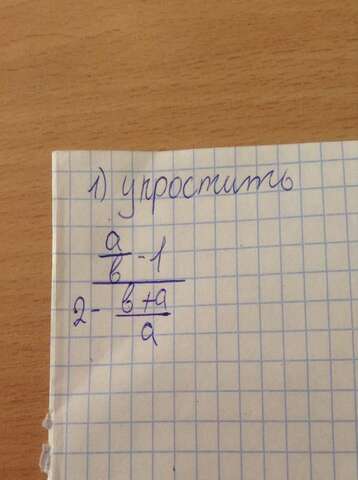 1) упростить
a/в - 1
2 - в+a/a